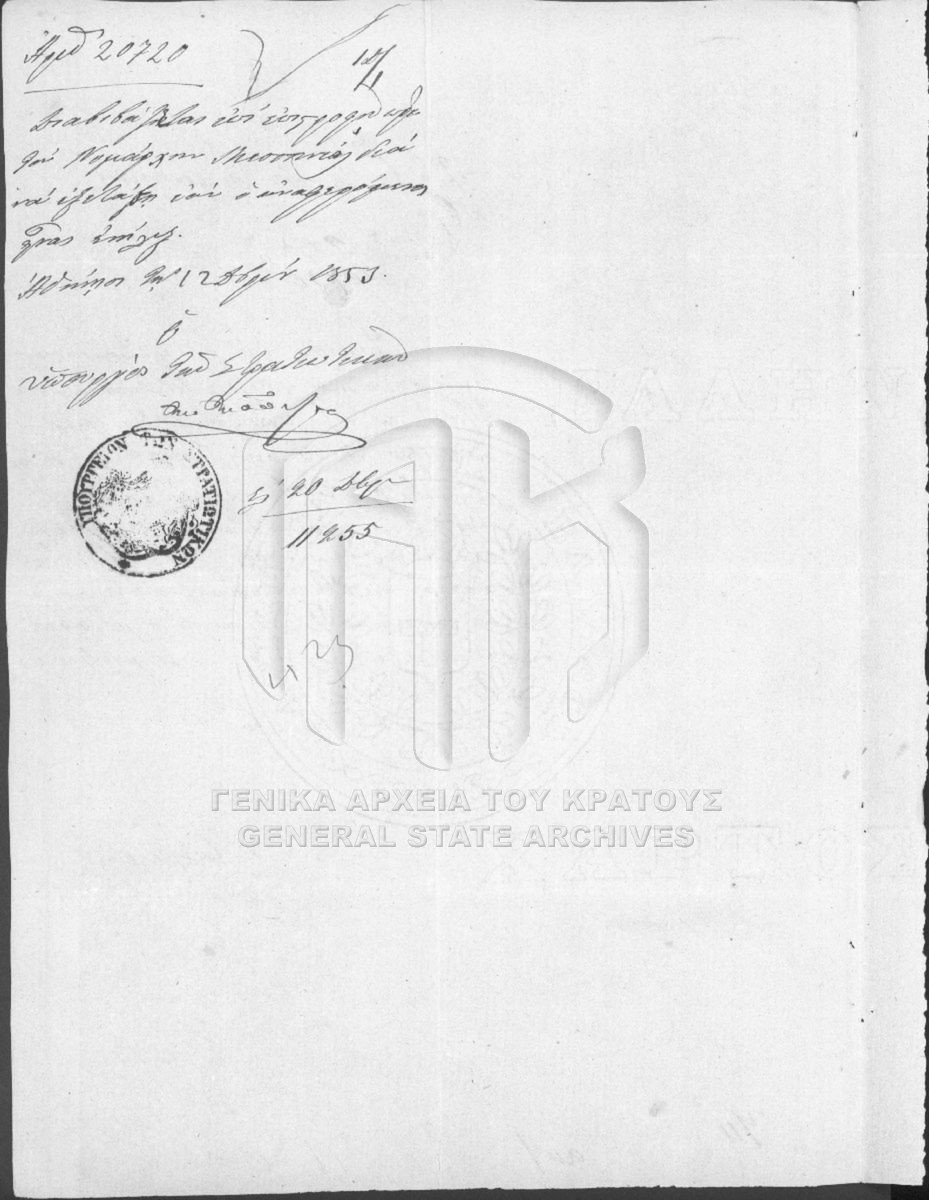 Ἀριθ 20720
12/1
Διαβιβάζεται ἐπὶ ἐπιστροφῇ πρὸς
τὸν Νομάρχην Μεσσηνίας διὰ
νὰ ἐξετάξῃ ἐὰν ὁ ἀναφερόμενος
Ἀθήνησι τῇ 12 Δβρίου 1853.
ὁ
ὑπουργὸς τῶν Στρατιωτικῶν
ΥΠΟΥΡΓΕΙΟΝ ΤΩΝ ΣΤΡΑΤΙΩΤΙΚΩΝ
20 Δβρ
11255
ΓΕΝΙΚΑ ΑΡΧΕΙΑ ΤΟΥ ΚΡΑΤΟΥΣ
GENERAL STATE ARCHIVES